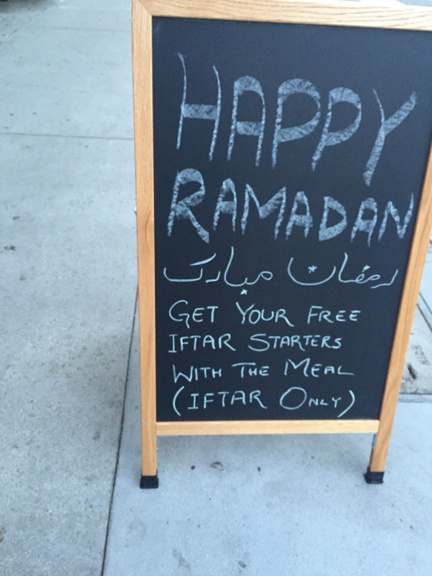 HAPPY
RAMADAN
رمضان مبارک
GET YOUR FREE
IFTAR STARTERS
WITH THE MEAL
(IFTAR ONLY)